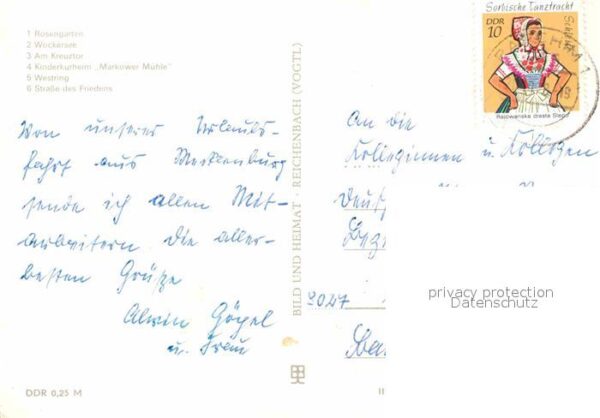 1 Rosengarten
2 Wockersee
3 Am Kreuztor
4 Kinderkurheim „Markower Mühle“
5 Westring
6 Straße des Friedens
Von unserer Urlaubs-
fahrt aus Mecklenburg
sende ich allen Mit-
arbeitern die aller-
besten Grüße
Alwin Göpel
u. Frau
DDR 0,25 M
BILD UND HEIMAT · REICHENBACH (VOGTL)
Sorbische Tanztracht
DDR
10
An die
Kolleginnen u. Kollegen
privacy protection
Datenschutz